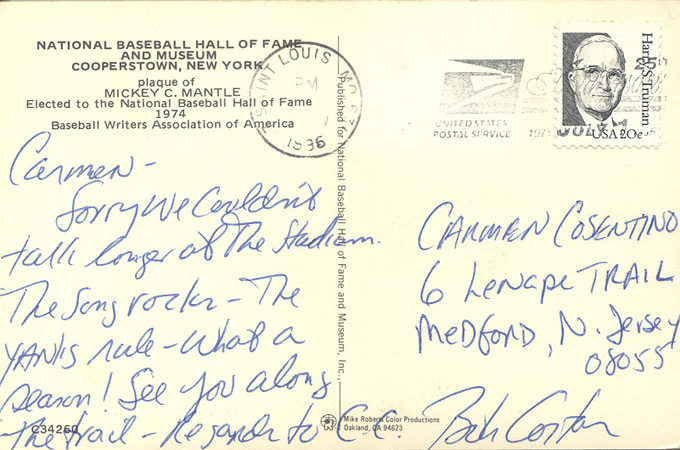 NATIONAL BASEBALL HALL OF FAME
AND MUSEUM
COOPERSTOWN, NEW YORK
plaque of
MICKEY C. MANTLE
Elected to the National Baseball Hall of Fame
1974
Baseball Writers Association of America
Carmen -
Sorry We Couldn't
talk longer at The Stadium.
The Song rocks - The
YANKS rule - What a
season! See you along
The trail - Regards to C.C. Bob Costas
C34260
Published for National Baseball Hall of Fame and Museum, Inc.,
Mike Roberts Color Productions
Oakland, CA 94623
SAINT LOUIS MO
PM
1996
UNITED STATES
POSTAL SERVICE
1971
25th
JULY
Harry S. Truman
USA 20c
CARMEN COSENTINO
6 Lenape TRAIL
MEDFORD, N. Jersey
08055